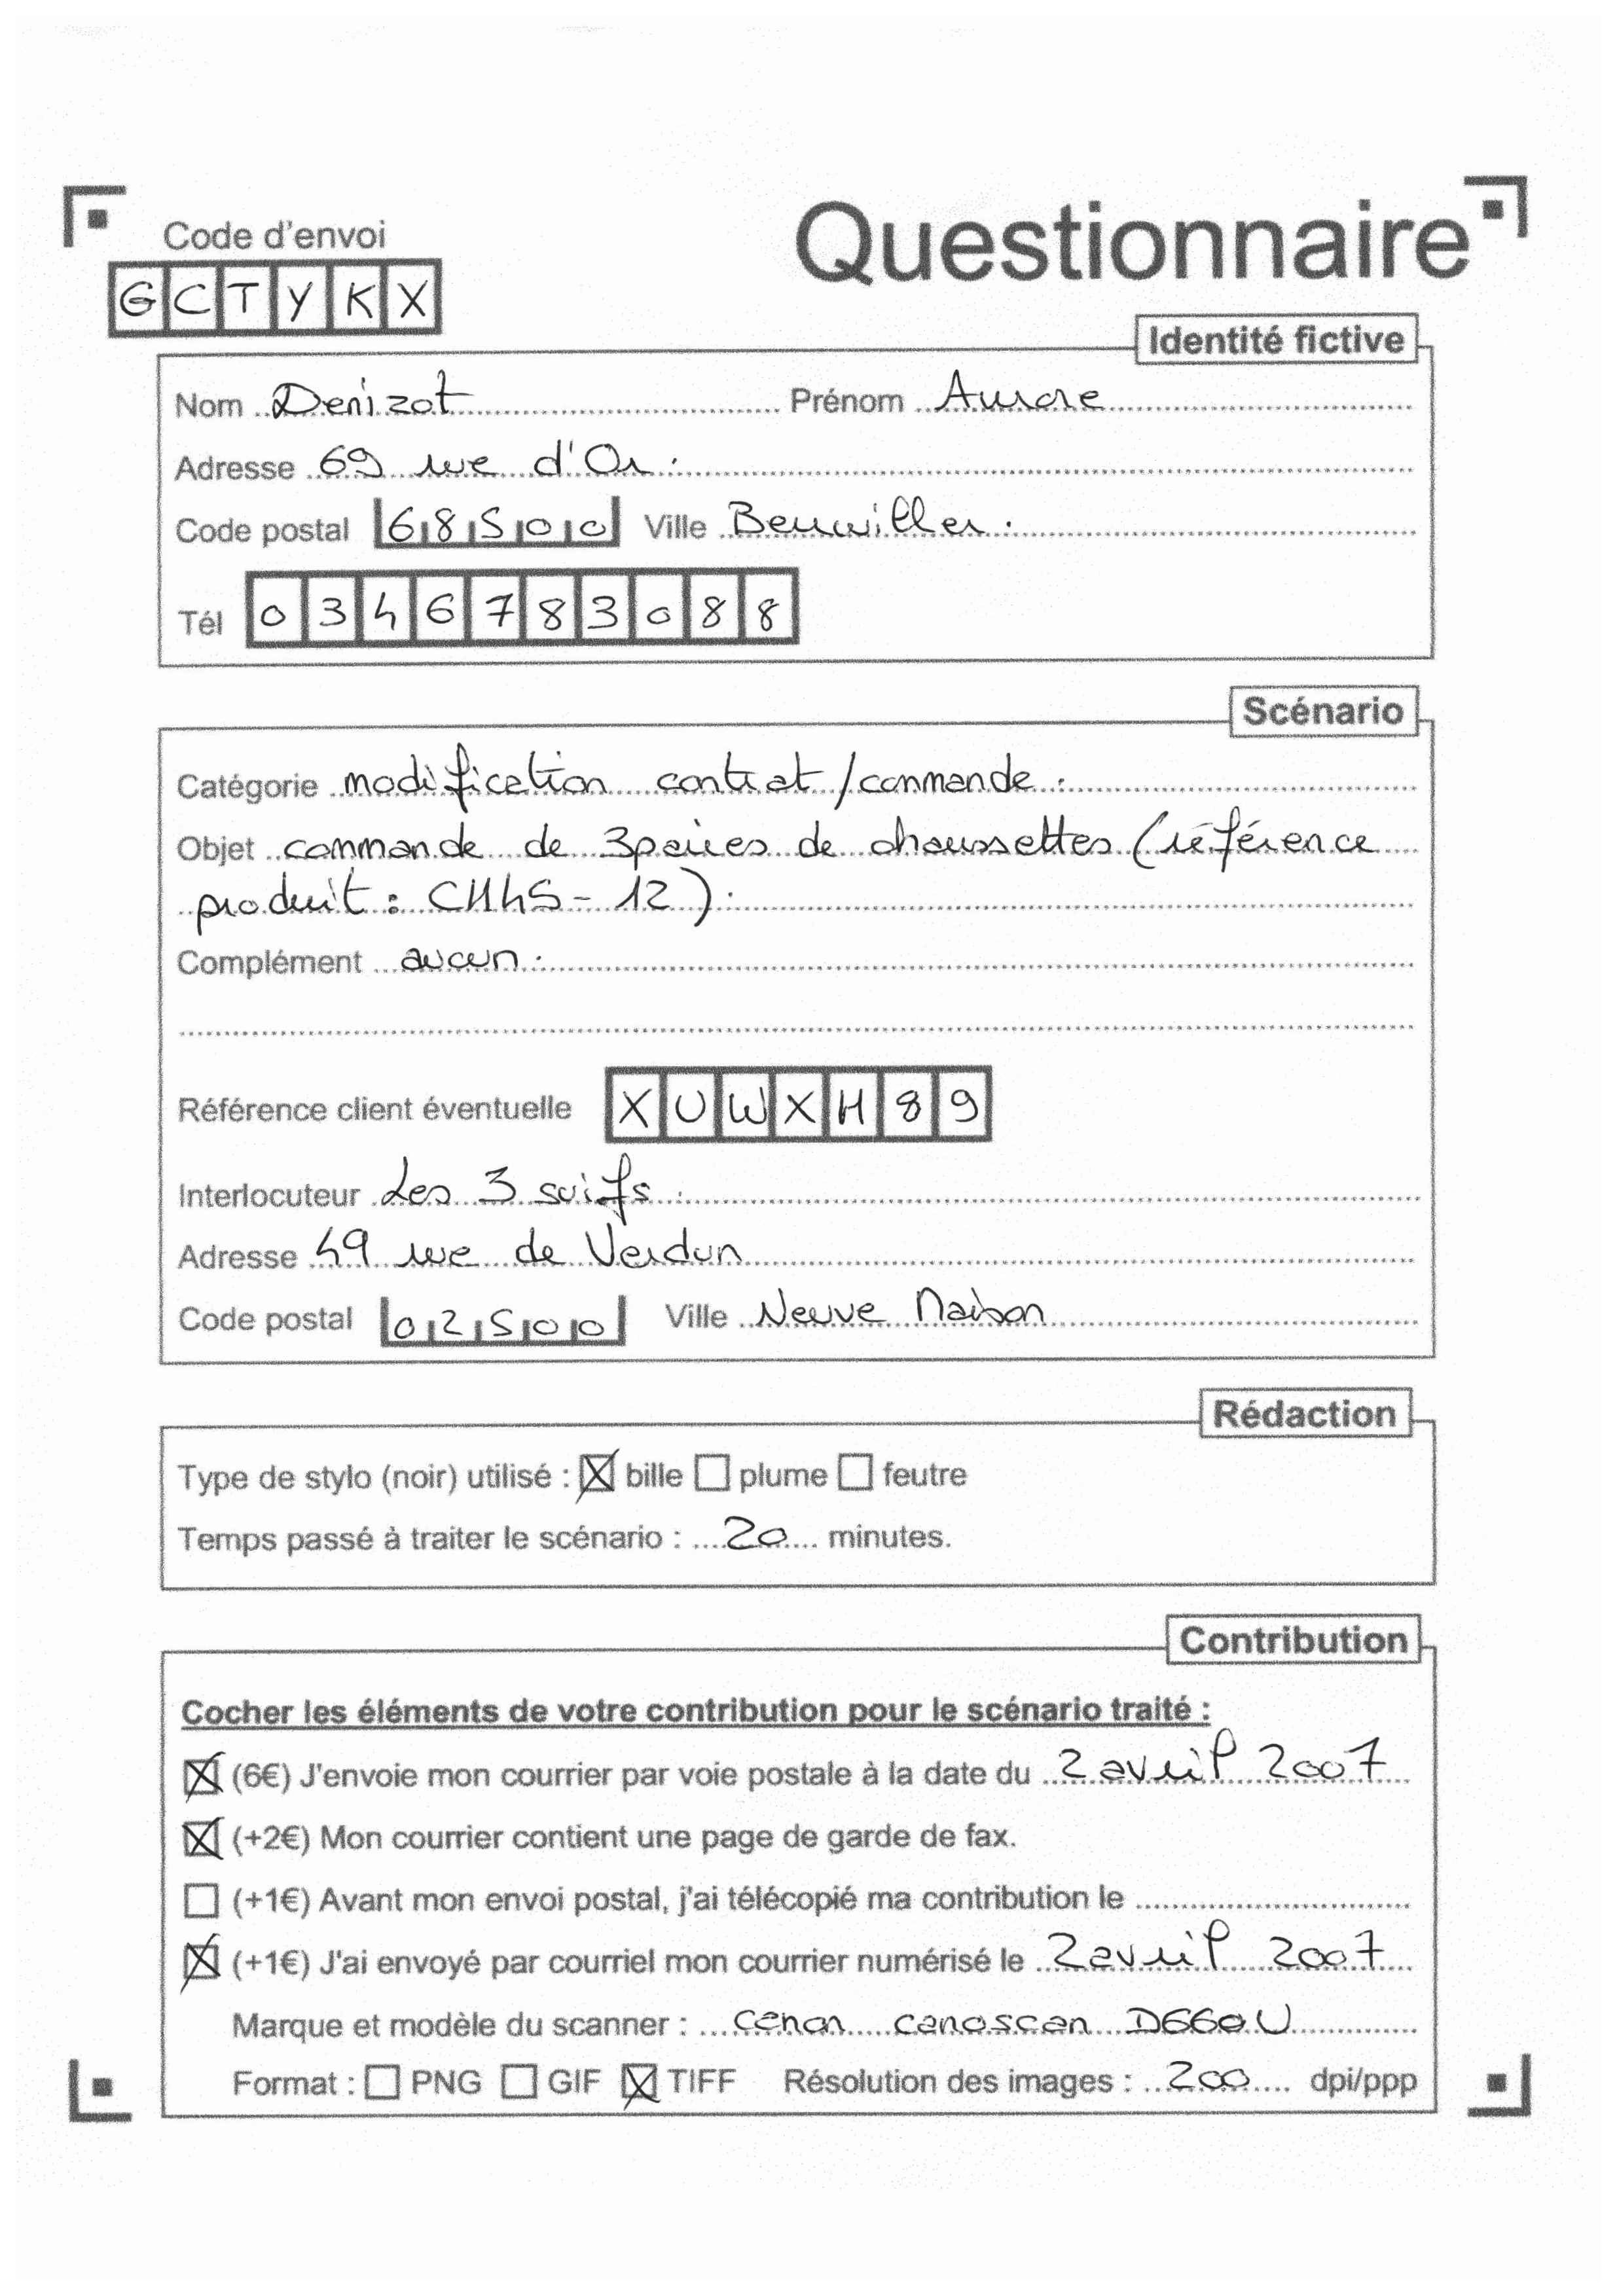 Code d'envoi
Questionnaire
GCTYKX
Identité fictive
Nom Denizot Prénom Aurore
Adresse 69 rue d'Or.
Code postal 68500 Ville Berrwiller.
Tél 0346783088
Scénario
Catégorie modification contrat/commande.
Objet commande de 3 paires de chaussettes (référence
produit : CH45-12).
Complément aucun.
Référence client éventuelle XUWXH89
Interlocuteur Les 3 suifs.
Adresse 49 rue de Verdun
Code postal 02500 Ville Neuve Maison
Rédaction
Type de stylo (noir) utilisé : ☒ bille ☐ plume ☐ feutre
Temps passé à traiter le scénario : 20 minutes.
Contribution
Cocher les éléments de votre contribution pour le scénario traité :
☒ (6€) J'envoie mon courrier par voie postale à la date du 2 avril 2007
☒ (+2€) Mon courrier contient une page de garde de fax.
☐ (+1€) Avant mon envoi postal, j'ai télécopié ma contribution le
☒ (+1€) J'ai envoyé par courriel mon courrier numérisé le 2 avril 2007
Marque et modèle du scanner : canoscan D660U
Format : ☐ PNG ☐ GIF ☒ TIFF Résolution des images : 200 dpi/ppp